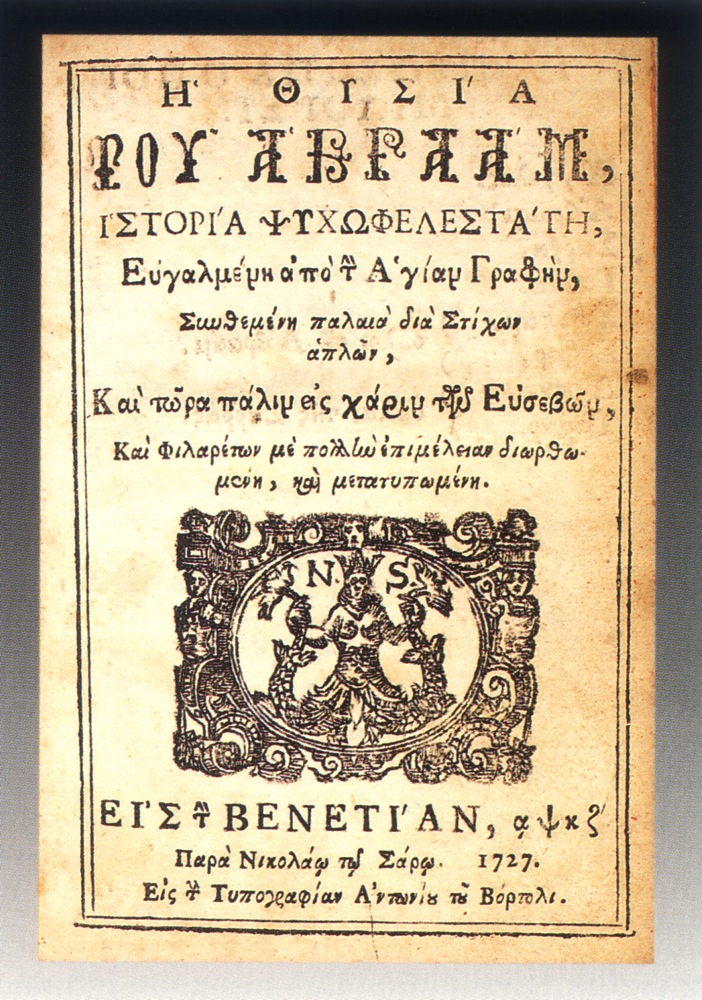 Ἡ ΘΥΣΙ´Α
ΤΟΥ͂ ἈΒΡΑΆΜ,
ἹΣΤΟΡΙ´Α ΨΥΧΩΦΕΛΕΣΤΑ´ΤΗ,
Εὐγαλμένη ἀπὸ τὴν Ἁγίαν Γραφὴν,
Συνθεμένη παλαιὰ διὰ Στίχων
ἁπλῶν,
Καὶ τῶρα πάλιν εἰς χάριν τῶν Εὐσεβῶν,
Καὶ Φιλαρέτων μὲ πολλὴν ἐπιμέλειαν διωρθω-
μένη, καὶ μετατυπωμένη.
N. S.
ΕἸΣ τὴν ΒΕΝΕΤΙ´ΑΝ, αψκζ´
Παρὰ Νικολάῳ τῷ Σάρῳ. 1727.
Εἰς τὴν Τυπογραφίαν Ἀντωνίου τοῦ Βόρτολι.